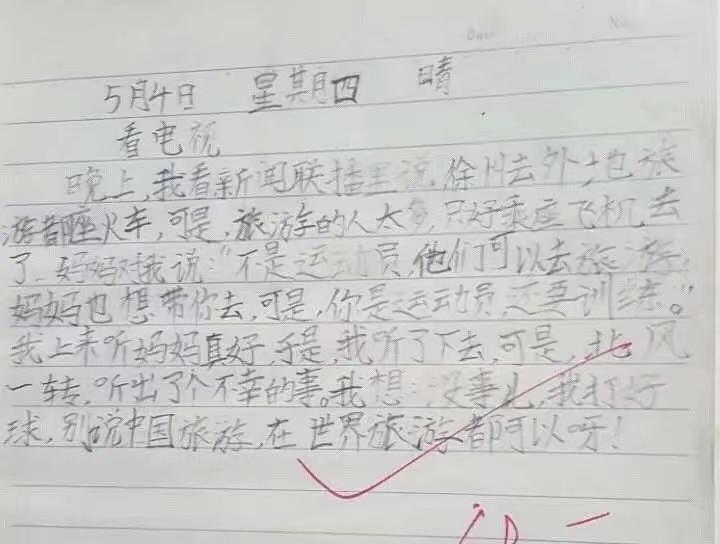 5月4日 星期四 晴
看电视
晚上,我看新闻联播里说,徐州去外地旅
游都座火车,可是,旅游的人太多,只好乘座飞机去
了.妈妈对我说:“不是运动员,他们可以去旅游,
妈妈也想带你去,可是,你是运动员,还要训练。”
我上来听妈妈真好,于是,我听了下去,可是,北风
一转,听出了个不幸的事。我想:没事儿,我打好
球,别说中国旅游,在世界旅游都可以呀!